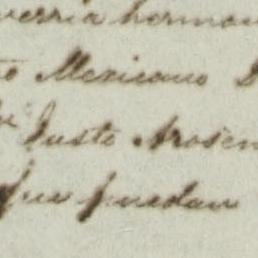 verria herman
to Mexicano D
n Justo Arosem
que puedan